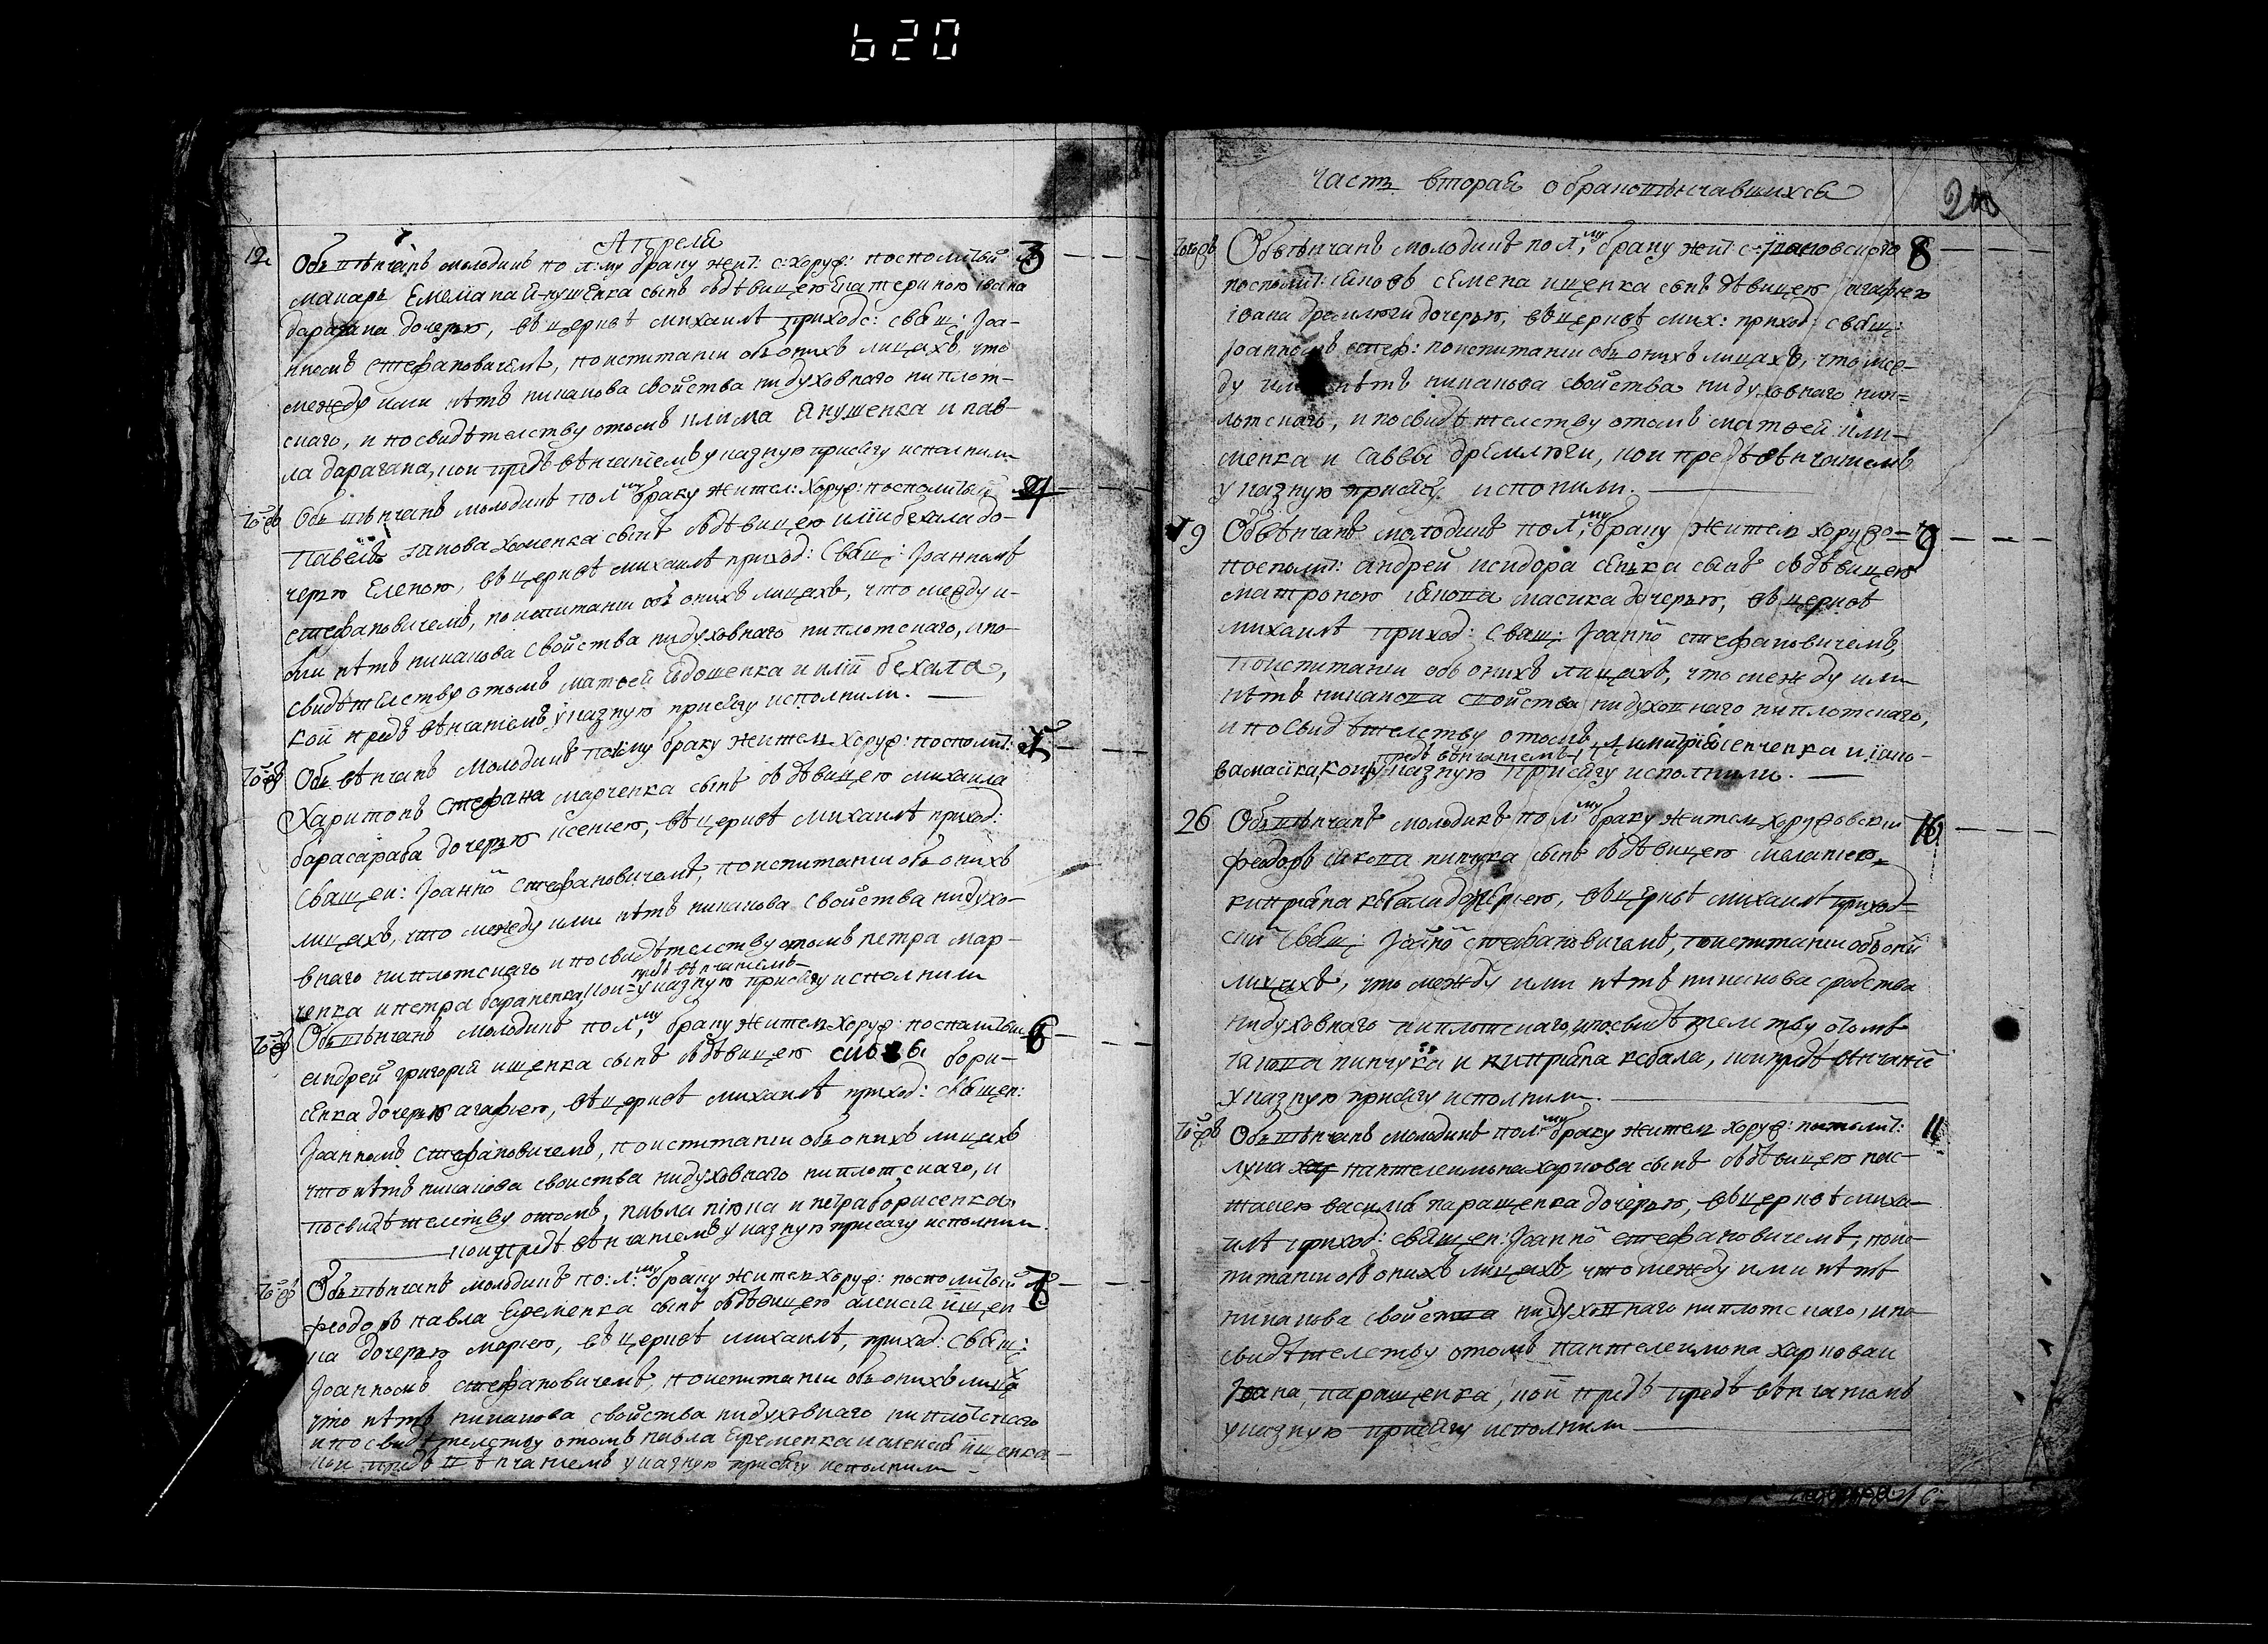 620
Апреля
12 Обвѣнчанъ молодикъ по 1:му браку жит: с: Хоруж: посполитый 3
макаръ Емелiана Янушенка сынъ зъ дѣвицею Екатериною iвана
дарагана дочерью, въ церквѣ михаилѣ приходс: свящ: Iоа-
нномъ стефановичемъ, поиспитанiи обь онихъ лицахъ, что
между ими нѣтъ никакова свойства нидуховнаго ниплот-
скаго, и посвидѣтелству отомъ клима Янушенка и пав-
ла дарагана, кои предъ вѣнчанiемъ указную присягу исполнили
Обвѣнчанъ молодикъ по 1му браку жител: Хоруж: посполитый 4
Павелъ якова хоменка сынъ зъ дѣвицею илiи бехала до-
черью Еленою, въ церквѣ михаилѣ приход: Свящ: Iоанномъ
стефановичемъ, поиспитанiи обь онихъ лицахъ, что между и-
ми нѣтъ никакова свойства нидуховнаго ниплотскаго, ипо-
свидѣтелству отомъ матвей Евдошенка и илiи бехала,
кои предъ вѣнчанiемъ указную присягу исполнили.
Обвѣнчанъ молодикъ по 1му браку жител Хоруж: посполит: 5
Харитонъ стефана марченка сынъ зъ дѣвицею михаила
барасараба дочерью ксенiею, въ церквѣ михаилѣ приход:
Священ: Iоанно стефановичемъ, поиспитанiи обь онихъ
лицахъ, что между ими нѣтъ никакова свойства нидухо-
внаго ниплотскаго и посвидѣтелству отомъ петра мар-
предъ вѣнчанiемъ
ченка и петра бараненка, кои указную присягу исполнили
Обвѣнчанъ молодикъ по 1му браку жител Хоруж: посполитый 6
андрей григорiй ищенка сынъ зъ дѣвицею бори-
сенка дочерью агафiею, въ церквѣ михаилѣ приход: священ:
Iоанномъ стефановичемъ, поиспитанiи обь онихъ лицахъ
что нѣтъ никакова своиства нидуховнаго ниплотскаго, и
посвидѣтелству отомъ, павла пiкна и петра борисенка
кои предъ вѣнчанiемъ указную присягу исполнили
Обвѣнчанъ молодикъ по: 1:му браку жител Хоруж: посполитый 7
феодоръ павла Еременка сынъ зъ дѣвицею алексiя ищен
ка дочерью марiею, въ церквѣ михаилѣ, приход: Свящ:
Iоанномъ стефановичемъ, поиспитанiи обь онихъ лицах
что нѣтъ никакова свойства нидуховнаго ниплотскаго
и посвидѣтелству отомъ павла Еременка и алексiя ищенка
кои предъ вѣнчанiемъ указную присягу исполнили
часть вторая обраковѣнчавшихся
Обвѣнчанъ молодикъ по 1му браку жит: с: 8
посполит: яковъ семена ищенка сынъ дѣвицею агафiею
iвана дремлюги дочерью, въ церквѣ мих: приход: свящ:
Iоанномъ стеф: поиспитанiи обь онихъ лицахъ, что меж-
ду ими нѣтъ никакова свойства нидуховнаго нип-
лотскаго, и посвидѣтелству отомъ матвей кли-
менка и саввы дремлюги, кои предъ вѣнчанiемъ
указную присягу исполнили.
19 Обвѣнчанъ молодикъ по 1му браку жител хоружо- 9
посполит: андрей исидора сенка сынъ зъ дѣвицею
матроною якова масика дочерью, въ церквѣ
михаилѣ приход: Свящ: Iоанно стефановичемъ,
поиспитанiи обь онихъ лицахъ, что между ими
нѣтъ никакова свойства нидуховнаго ниплотскаго,
и посвидѣтелству отомъ димитрiя сенченка и iако-
предъ вѣнчанiемъ
ва масика, кои указную присягу исполнили.
26 Обвѣнчанъ молодикъ по 1му браку жител хоружовскiй 10
феодоръ якова пинчука сынъ зъ дѣвицею меланiею
киприяна кебала дочерью, въ церквѣ михаилѣ приход-
скiй Свящ: Iоанно стефановичемъ, поиспитанiи обь они
лицахъ, что между ими нѣтъ никакова сродства
нидуховнаго ниплотскаго, ипосвидѣтелству отомъ
якова пинчука и киприяна кебала, кои предъ вѣнчанiе
указную присягу исполнили.
Обвѣнчанъ молодикъ по 1му браку жител хоруж: посполит: 11
лука пантелеимона харкова сынъ зъ дѣвицею нас-
тасiею василя паращенка дочерью, въ церквѣ миха-
илѣ приход: священ: Iоанно стефановичемъ, поис-
питанiи обь онихъ лицахъ, что между ими нѣтъ
никакова свойства нидуховнаго ниплотскаго, ипо
свидѣтелству отомъ пантелеимона харкова и
Iвана паращенка, кои предъ предъ вѣнчанiемъ
указную присягу исполнили